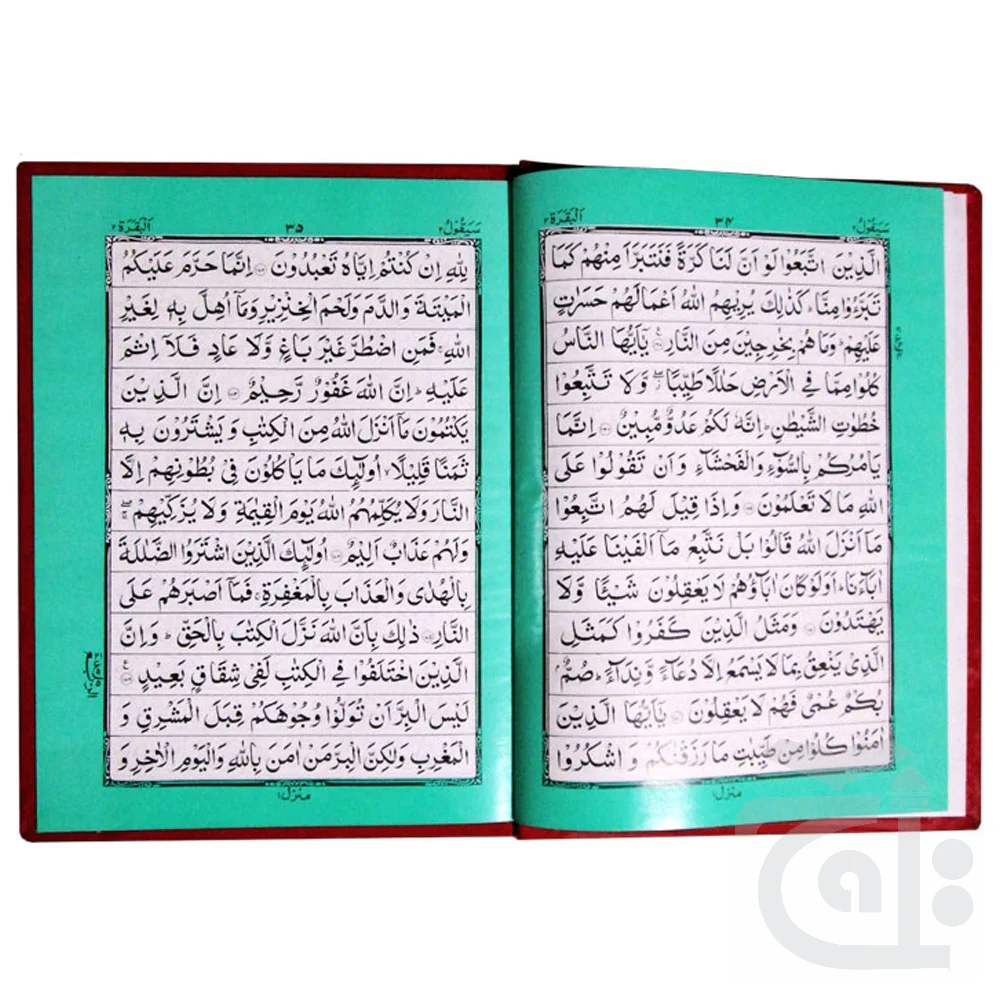 سَيَقُوْلُ ٢
٣٤
اَلْبَقَرَة ٢
الَّذِيْنَ اتَّبَعُوْا لَوْ اَنَّ لَنَا كَرَّةً فَنَتَبَرَّاَ مِنْهُمْ كَمَا
تَبَرَّءُوْا مِنَّا ؕ كَذٰلِكَ يُرِيْهِمُ اللّٰهُ اَعْمَالَهُمْ حَسَرٰتٍ
عَلَيْهِمْ ؕ وَمَا هُمْ بِخٰرِجِيْنَ مِنَ النَّارِ يٰٓاَيُّهَا النَّاسُ
كُلُوْا مِمَّا فِي الْاَرْضِ حَلٰلًا طَيِّبًا ۖ وَّلَا تَتَّبِعُوْا
خُطُوٰتِ الشَّيْطٰنِ ؕ اِنَّهٗ لَكُمْ عَدُوٌّ مُّبِيْنٌ اِنَّمَا
يَاْمُرُكُمْ بِالسُّوْٓءِ وَالْفَحْشَآءِ وَاَنْ تَقُوْلُوْا عَلَى
اللّٰهِ مَا لَا تَعْلَمُوْنَ وَاِذَا قِيْلَ لَهُمُ اتَّبِعُوْا
مَآ اَنْزَلَ اللّٰهُ قَالُوْا بَلْ نَتَّبِعُ مَآ اَلْفَيْنَا عَلَيْهِ
اٰبَآءَنَا ؕ اَوَلَوْ كَانَ اٰبَآؤُهُمْ لَا يَعْقِلُوْنَ شَيْـًٔا وَّلَا
يَهْتَدُوْنَ وَمَثَلُ الَّذِيْنَ كَفَرُوْا كَمَثَلِ
الَّذِيْ يَنْعِقُ بِمَا لَا يَسْمَعُ اِلَّا دُعَآءً وَّنِدَآءً ؕ صُمٌّۢ
بُكْمٌ عُمْيٌ فَهُمْ لَا يَعْقِلُوْنَ يٰٓاَيُّهَا الَّذِيْنَ
اٰمَنُوْا كُلُوْا مِنْ طَيِّبٰتِ مَا رَزَقْنٰكُمْ وَاشْكُرُوْا
منزل ١
سَيَقُوْلُ ٢
٣٥
اَلْبَقَرَة ٢
لِلّٰهِ اِنْ كُنْتُمْ اِيَّاهُ تَعْبُدُوْنَ اِنَّمَا حَرَّمَ عَلَيْكُمُ
الْمَيْتَةَ وَالدَّمَ وَلَحْمَ الْخِنْزِيْرِ وَمَآ اُهِلَّ بِهٖ لِغَيْرِ
اللّٰهِ ۚ فَمَنِ اضْطُرَّ غَيْرَ بَاغٍ وَّلَا عَادٍ فَلَآ اِثْمَ
عَلَيْهِ ؕ اِنَّ اللّٰهَ غَفُوْرٌ رَّحِيْمٌ اِنَّ الَّذِيْنَ
يَكْتُمُوْنَ مَآ اَنْزَلَ اللّٰهُ مِنَ الْكِتٰبِ وَيَشْتَرُوْنَ بِهٖ
ثَمَنًا قَلِيْلًا ۙ اُولٰٓئِكَ مَا يَاْكُلُوْنَ فِيْ بُطُوْنِهِمْ اِلَّا
النَّارَ وَلَا يُكَلِّمُهُمُ اللّٰهُ يَوْمَ الْقِيٰمَةِ وَلَا يُزَكِّيْهِمْ ۖ
وَلَهُمْ عَذَابٌ اَلِيْمٌ اُولٰٓئِكَ الَّذِيْنَ اشْتَرَوُا الضَّلٰلَةَ
بِالْهُدٰى وَالْعَذَابَ بِالْمَغْفِرَةِ ۚ فَمَآ اَصْبَرَهُمْ عَلَى
النَّارِ ذٰلِكَ بِاَنَّ اللّٰهَ نَزَّلَ الْكِتٰبَ بِالْحَقِّ ؕ وَاِنَّ
الَّذِيْنَ اخْتَلَفُوْا فِي الْكِتٰبِ لَفِيْ شِقَاقٍۢ بَعِيْدٍ
لَيْسَ الْبِرَّ اَنْ تُوَلُّوْا وُجُوْهَكُمْ قِبَلَ الْمَشْرِقِ وَ
الْمَغْرِبِ وَلٰكِنَّ الْبِرَّ مَنْ اٰمَنَ بِاللّٰهِ وَالْيَوْمِ الْاٰخِرِ وَ
منزل ١